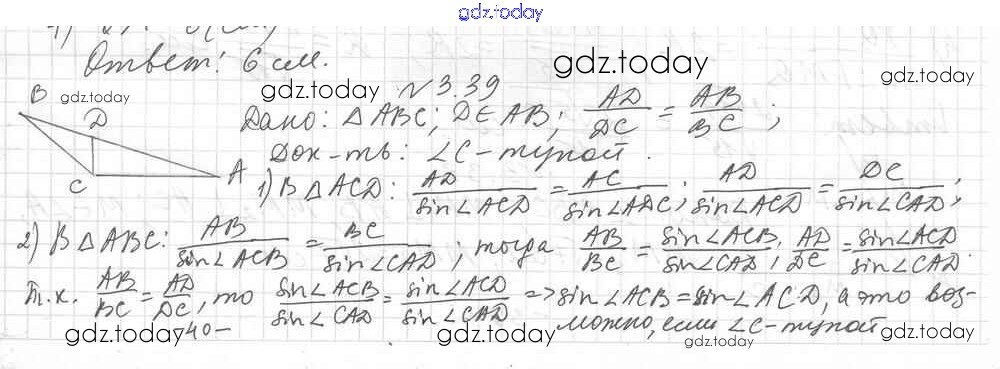 gdz.today
Ответ: 6 см.
gdz.today
gdz.today
gdz.today
gdz.today
№3.39
Дано: △ABC; D∈AB; AD/DC = AB/BC;
Док-ть: ∠C-тупой.
B
D
C
A
1) В △ACD: AD/sin∠ACD = AC/sin∠ADC; AD/sin∠ACD = DC/sin∠CAD;
2) В △ABC: AB/sin∠ACB = BC/sin∠CAD; тогда AB/BC = sin∠ACB/sin∠CAD; AD/DC = sin∠ACD/sin∠CAD.
Т.к. AB/BC = AD/DC, то sin∠ACB/sin∠CAD = sin∠ACD/sin∠CAD => sin∠ACB = sin∠ACD, а это воз-
можно, если ∠C-тупой
-40-
gdz.today
gdz.today
gdz.today
gdz.today